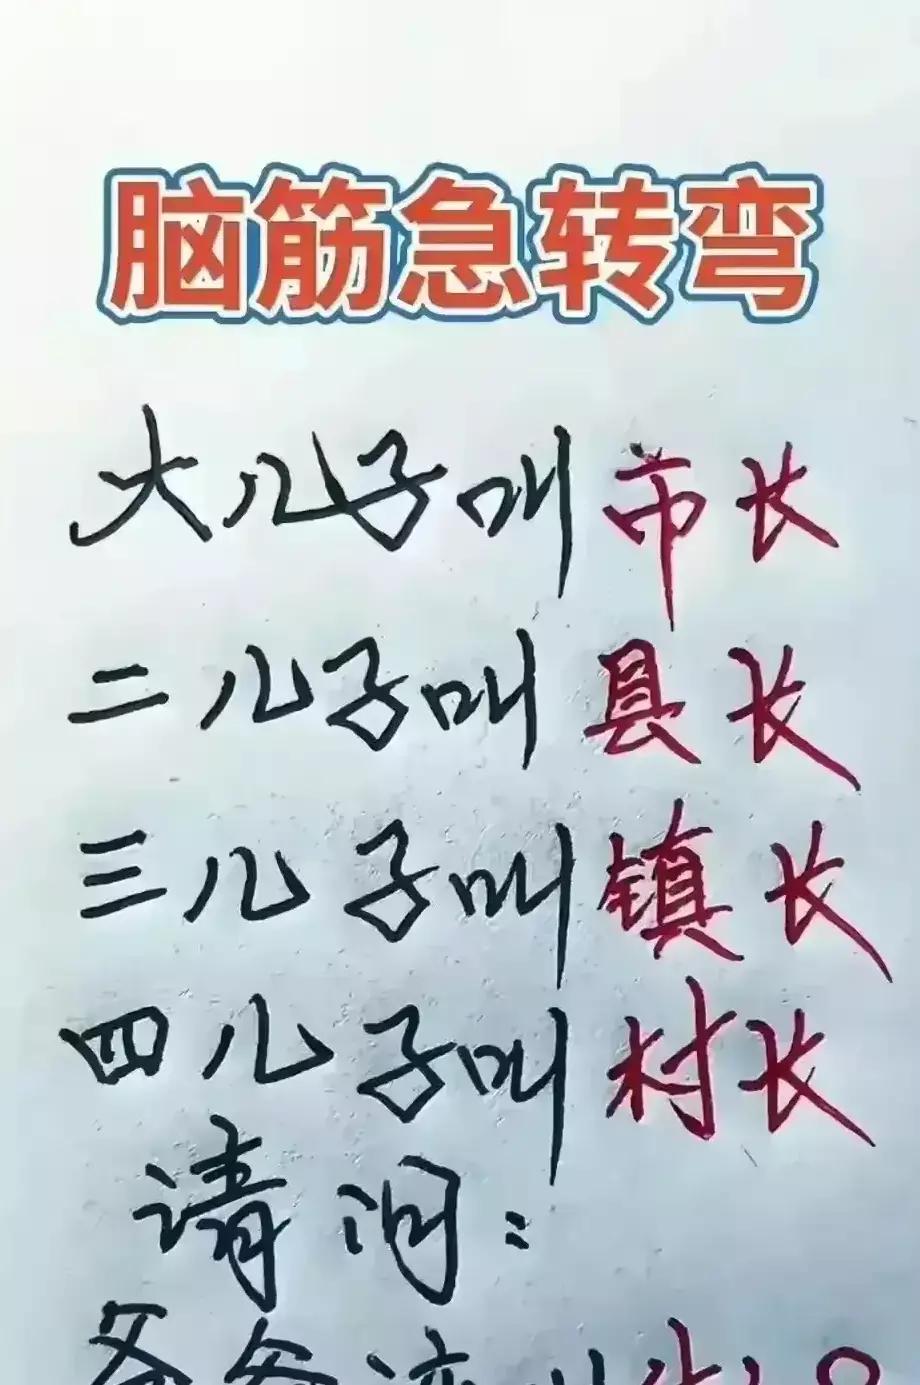 脑筋急转弯
大儿子叫市长
二儿子叫县长
三儿子叫镇长
四儿子叫村长
请问: